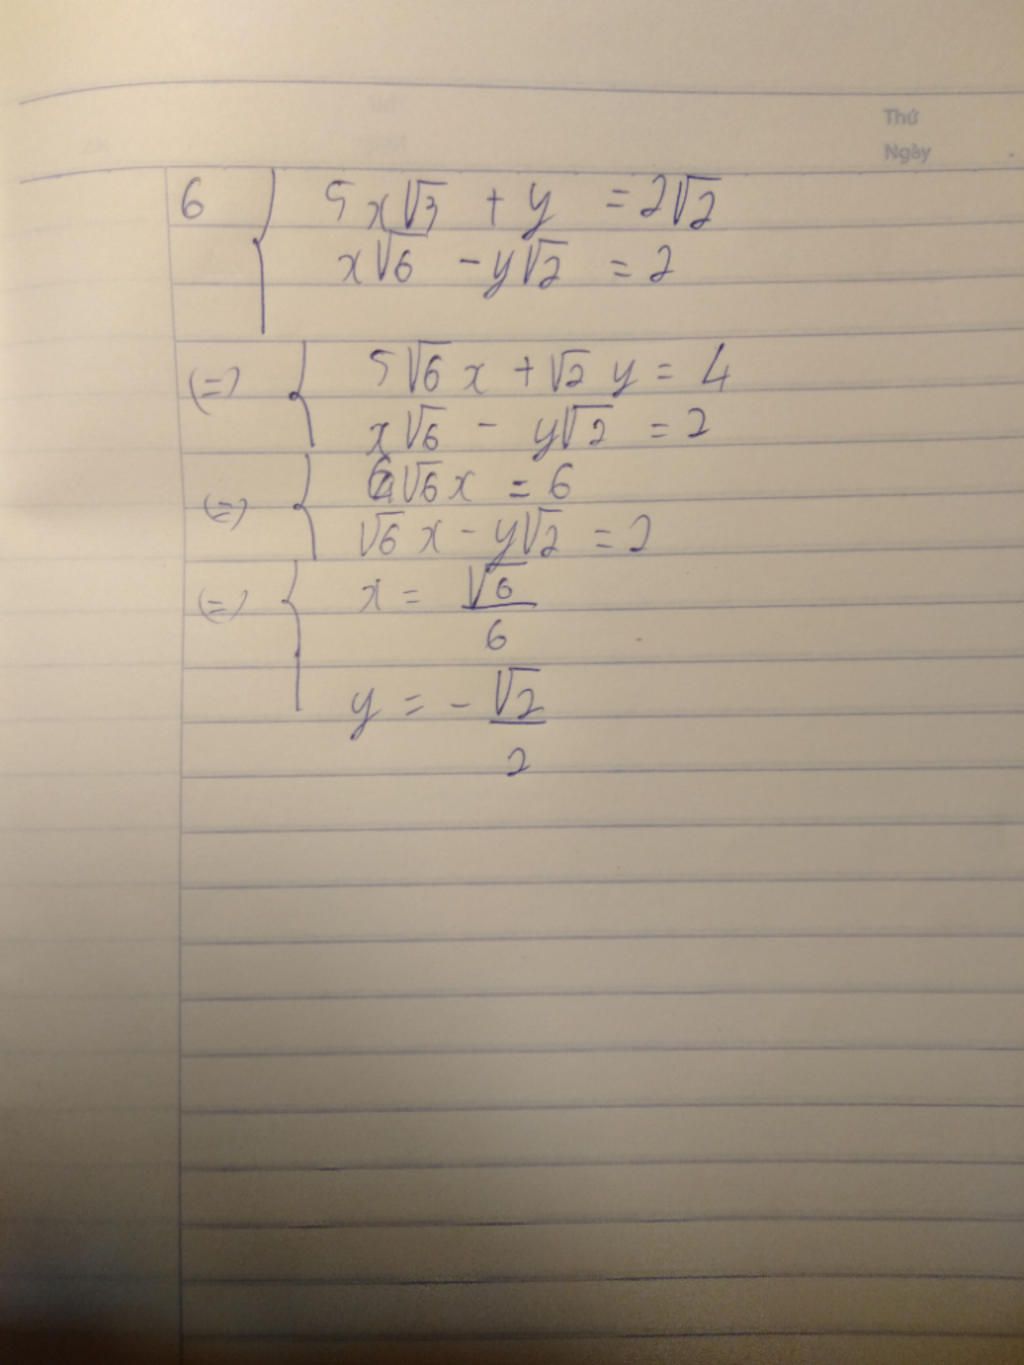 Thứ
Ngày
6 { 5x√3 + y = 2√2
x√6 - y√2 = 2
(=) { 5√6 x + √2 y = 4
x√6 - y√2 = 2
(=) { 6√6 x = 6
√6 x - y√2 = 2
(=) { x = √6/6
y = -√2/2